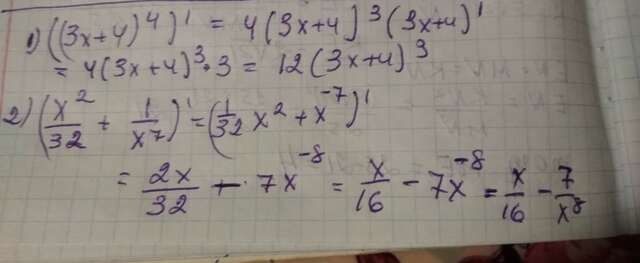 1) ((3x+4)⁴)' = 4(3x+4)³(3x+4)'
= 4(3x+4)³·3 = 12(3x+4)³
2) (x²/32 + 1/x⁷)' = (1/32 x² + x⁻⁷)'
= 2x/32 - 7x⁻⁸ = x/16 - 7x⁻⁸ = x/16 - 7/x⁸